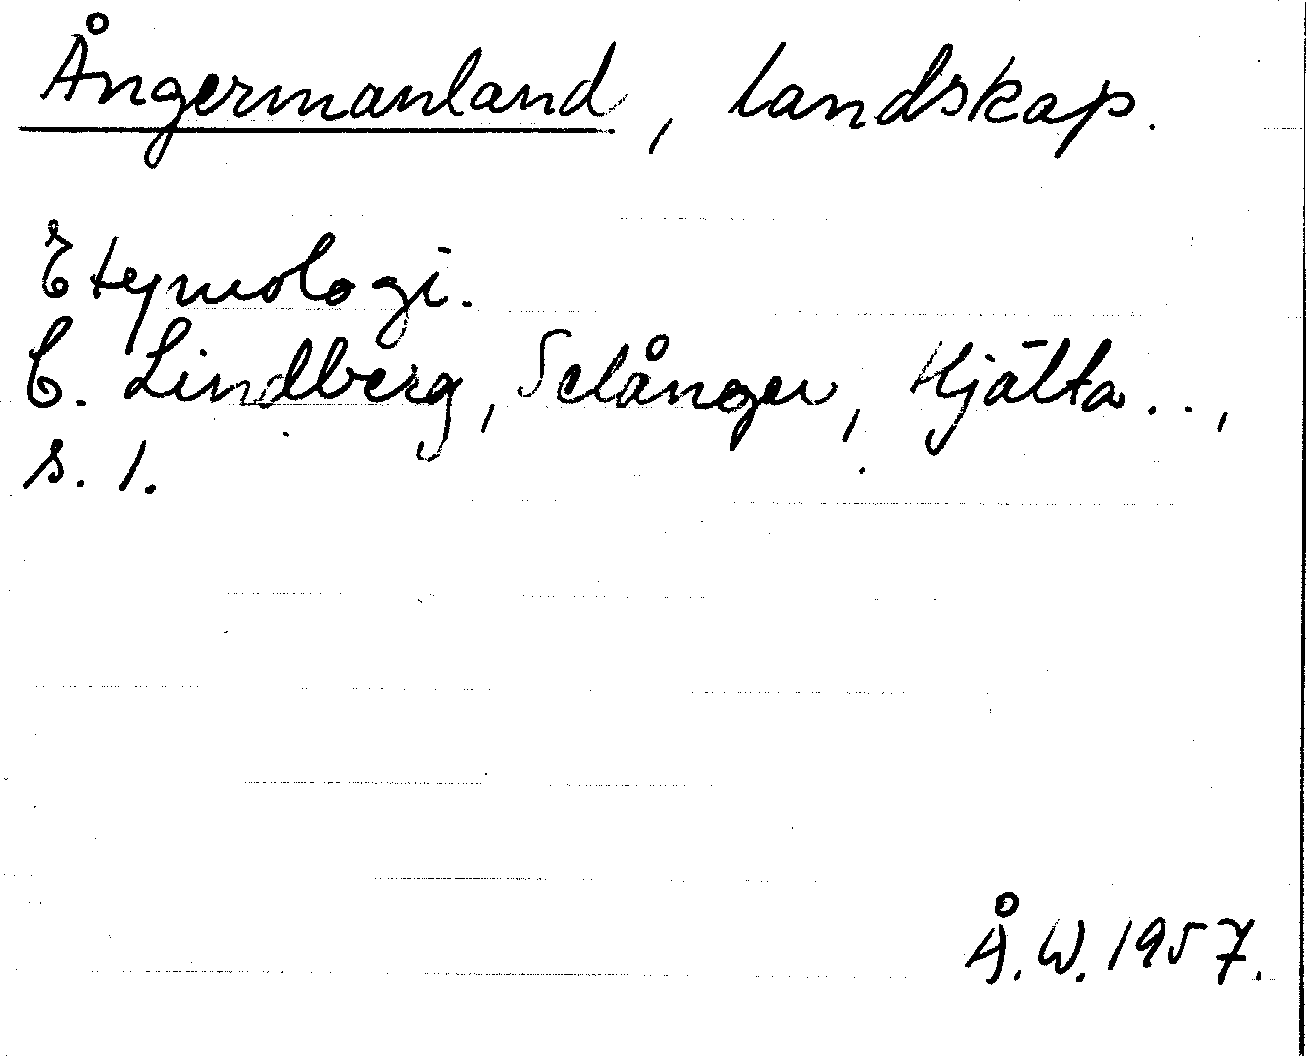 Ångermanland, landskap.
Etymologi.
C. Lindberg, Selånger, Hjälta..,
s. 1.
Å.W. 1957.